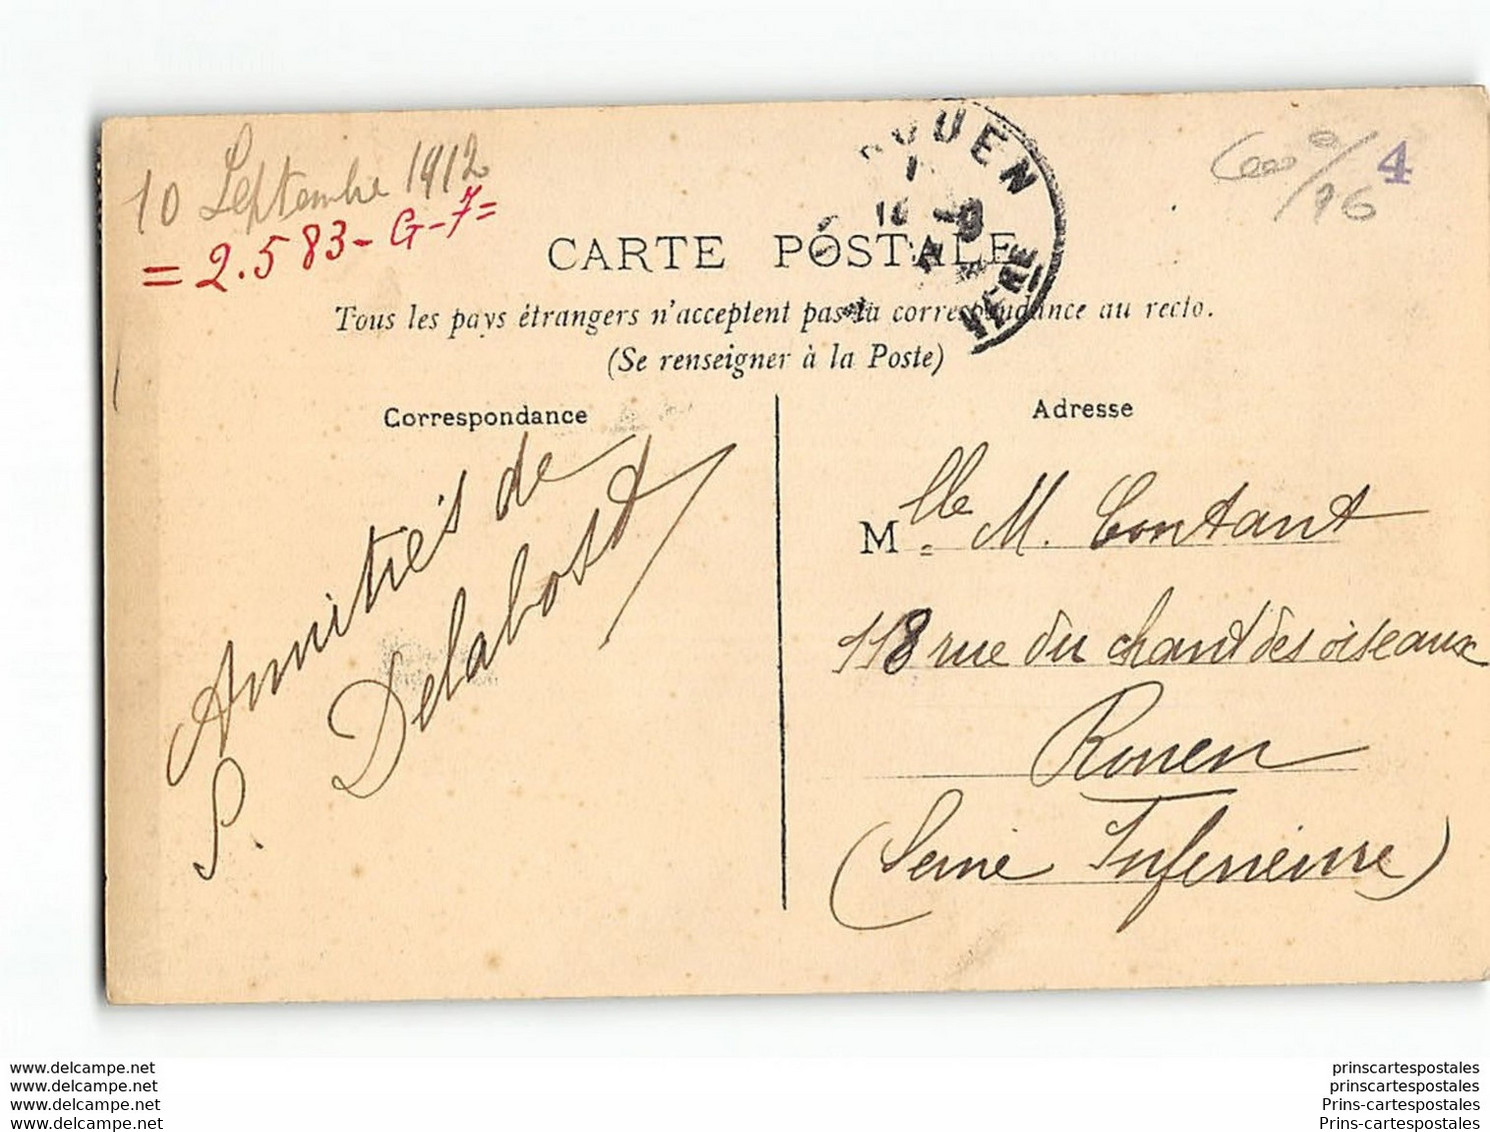 10 Septembre 1912
= 2.583 - G - 7 =
4
ROUEN
CARTE POSTALE
Tous les pays étrangers n'acceptent pas la correspondance au recto.
(Se renseigner à la Poste)
Correspondance
Amitiés de
S. Delabost
Adresse
Mlle M. Contant
118 rue du chant des oiseaux
Rouen
(Seine Inférieure)
www.delcampe.net
www.delcampe.net
www.delcampe.net
www.delcampe.net
prinscartespostales
prinscartespostales
Prins-cartespostales
Prins-cartespostales